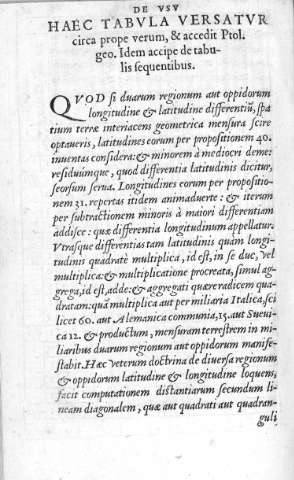 DE VSV
HAEC TABVLA VERSATVR
circa prope verum, & accedit Ptol.
geo. Idem accipe de tabu-
lis sequentibus.
QVOD si duarum regionum aut oppidorum
longitudine & latitudine differentiũ, spa
tium terræ interiacens geometrica mensura scire
optaueris, latitudines eorum per propositionem 40.
inuentas considera: & minorem à mediocri deme:
residuumque, quod differentia latitudinis dicitur,
seorsum serua. Longitudines eorum per propositio-
nem 31. repertas itidem animaduerte: & iterum
per subtractionem minoris à maiori differentiam
addisce: quæ differentia longitudinum appellatur.
Vtrasque differentias tam latitudinis quàm longi-
tudinis quadratè multiplica, id est, in se duc, vel
multiplica: & multiplicatione procreata, simul ag-
grega, id est, adde: & aggregati quære radicem qua-
dratam: quã multiplica aut per miliaria Italica, sci
licet 60. aut Alemanica communia, 15. aut Sueui-
ca 12. & productum, mensuram terrestrem in mi-
liaribus duarum regionum aut oppidorum manife-
stabit. Hæc veterum doctrina de diuersa regionum
& oppidorum latitudine & longitudine loquens,
facit computationem distantiarum secundum li-
neam diagonalem, quæ aut quadrati aut quadran-
guli